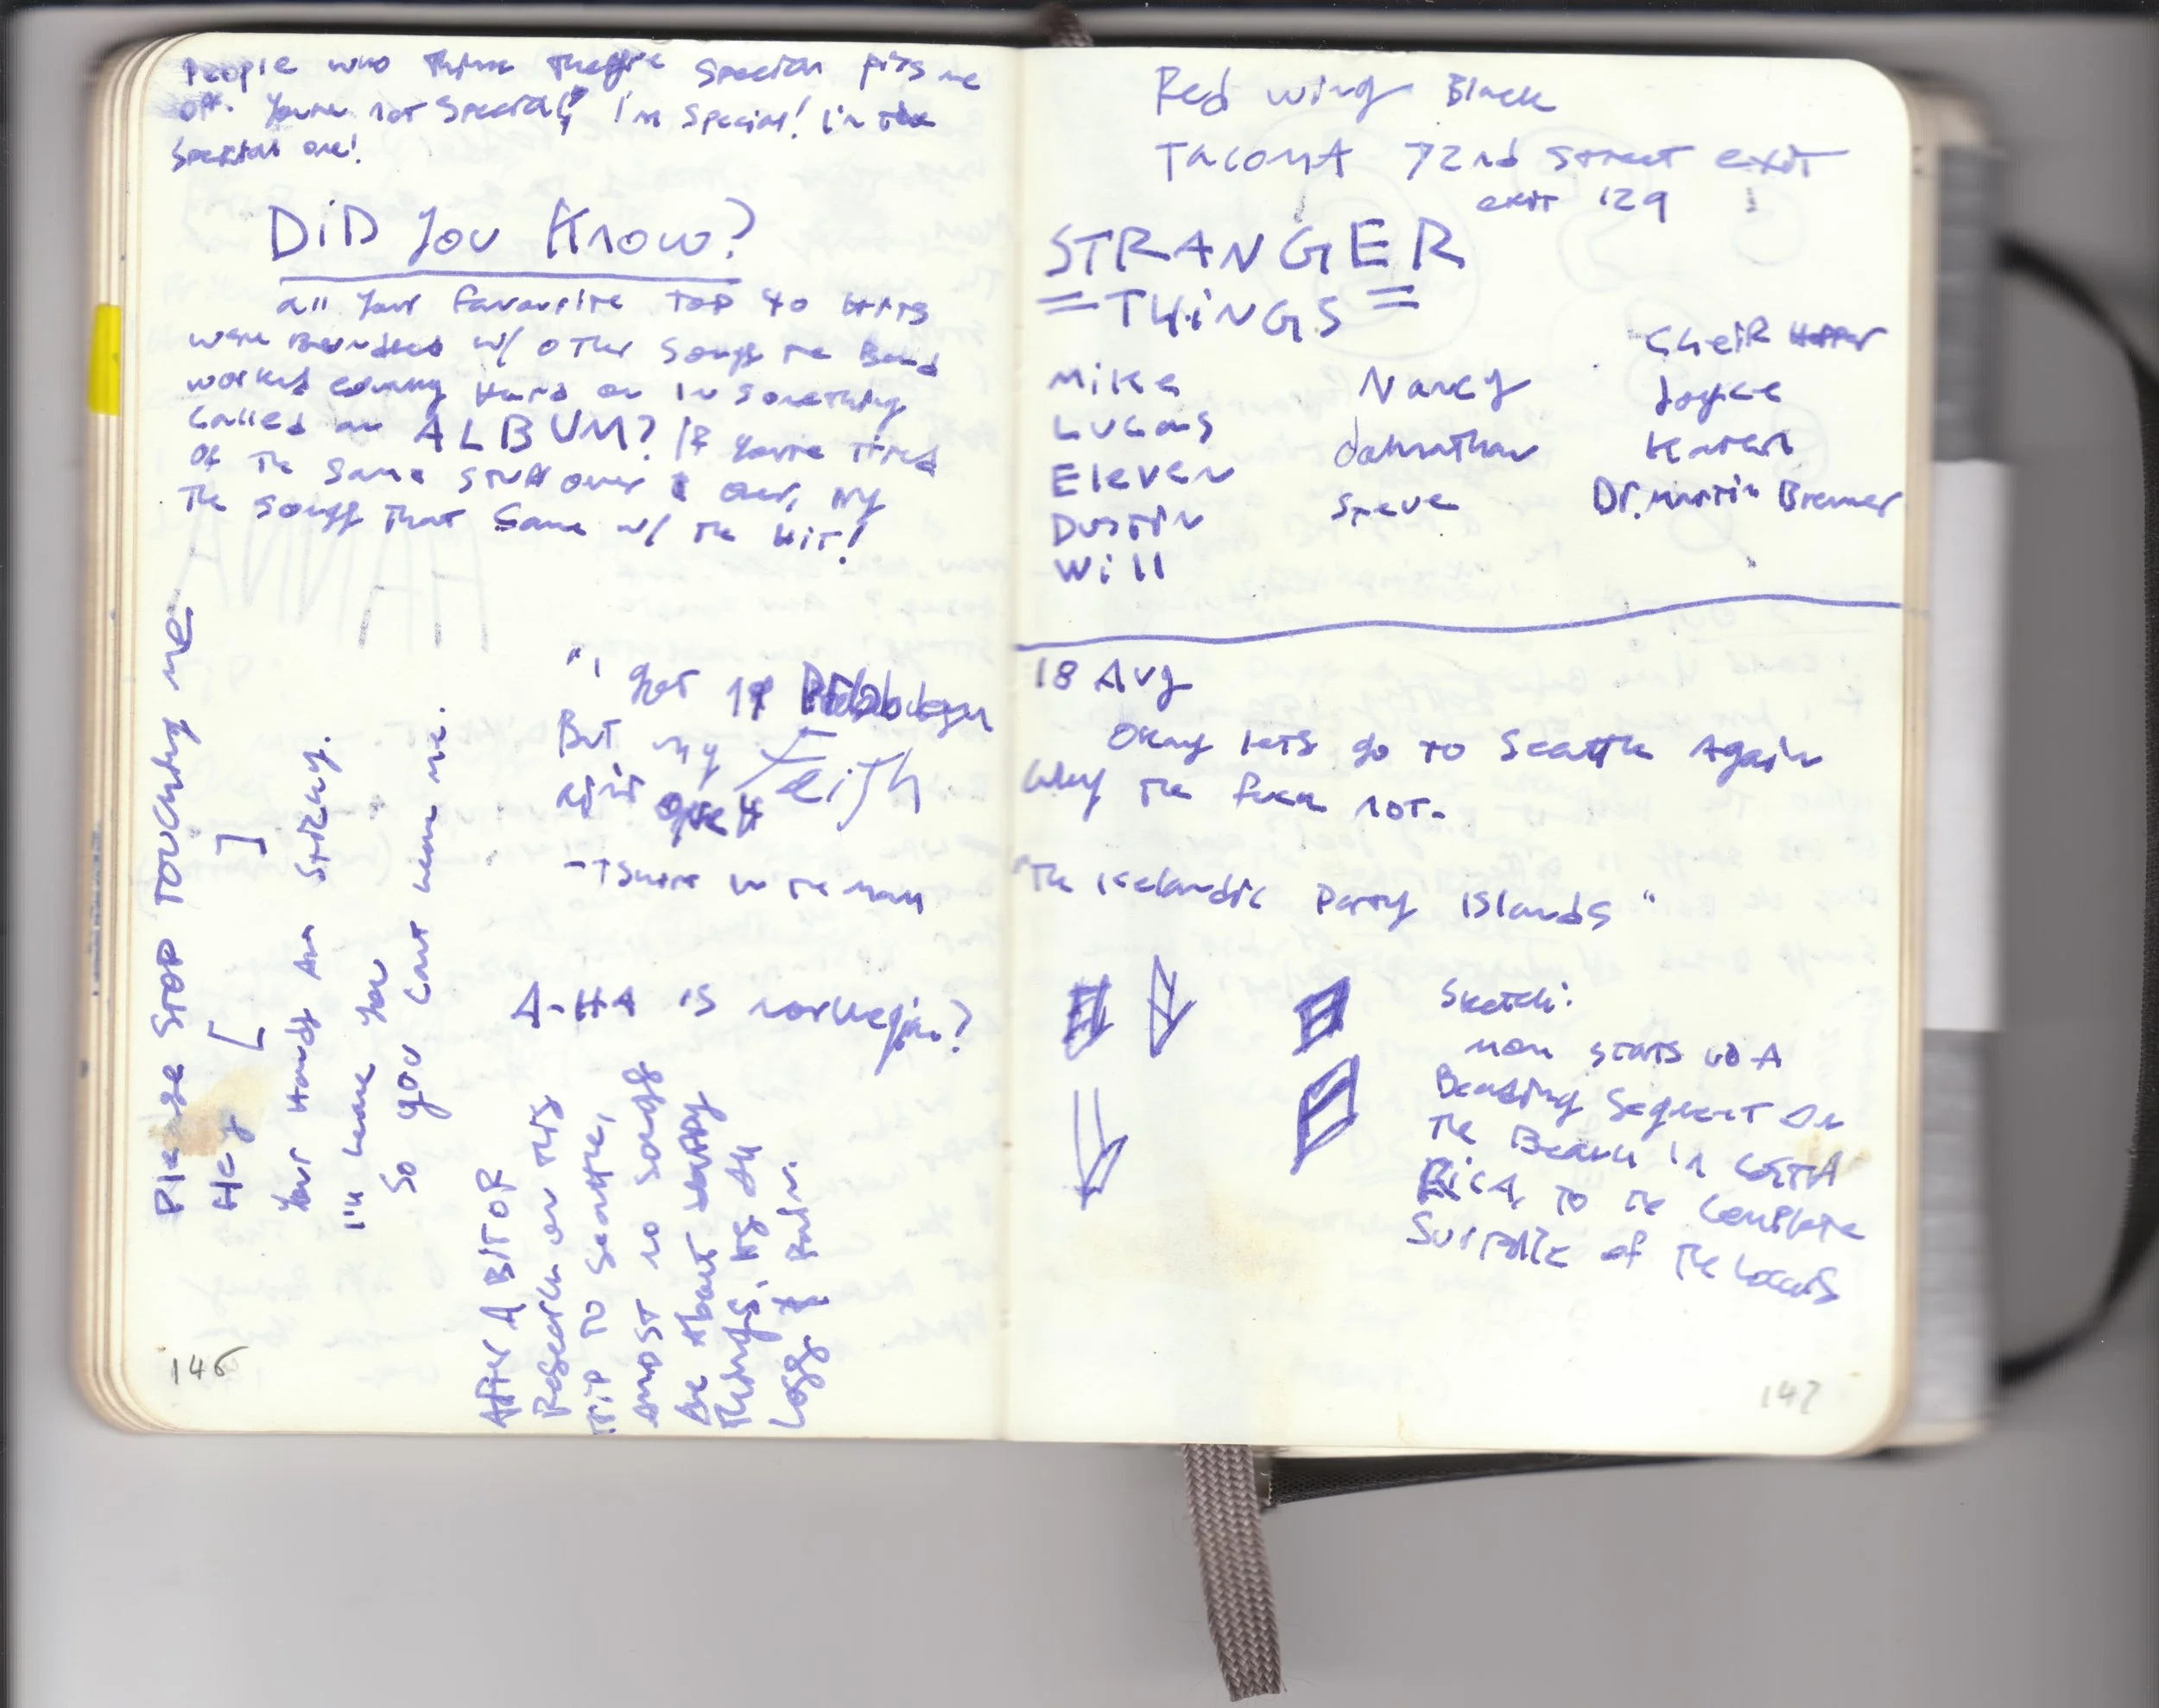 People who think they're special piss me
off. You're not special, I'm special! I'm the
special one!
DiD you Know?
all your favourite top 40 hits
were bundled w/ other songs the band
worked hard on in something
called an ALBUM? If you're tired
of the same stuff over & over, try
the songs that came w/ the hit!
Please STOP TOUCHING me
Hey [ ]
Your hands are sticky.
I'll leave you
so you can't leave me.
"I got 19 Problems
But my Faith
ain't one
-T Shirt in the mall
A-HA is norwegian?
After A BiT OF
Research on this
trip to Seattle,
almost no songs
are about
things, its all
Logs &
146
Red wing Black
TACOMA 72nd Street exit
exit 129
STRANGER
= THiNGS =
Mike
Lucas
Eleven
Dustin
Will
Nancy
Johnathan
Steve
Cheif Hopper
Joyce
Karen
Dr. Martin Brenner
18 Aug
Okay lets go to Seattle Again
why the fuck not.
"The Icelandic Party Islands"
Sketch:
man starts up A
Beading Segment on
the Beach in COSTA
RiCA, to the complete
surprise of the locals
147